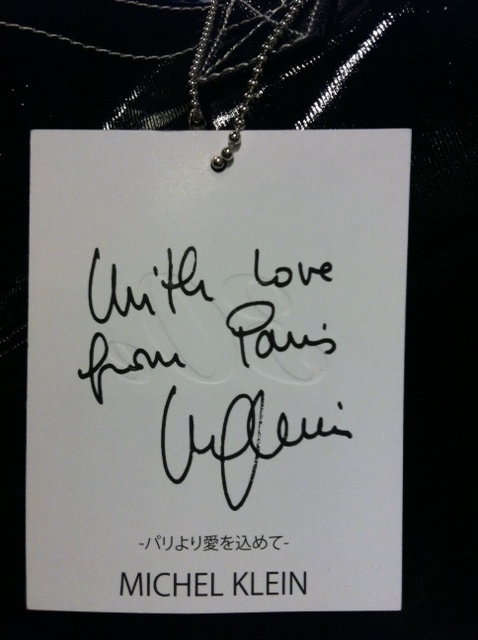 With Love
from Paris
MKlein
-パリより愛を込めて-
MICHEL KLEIN